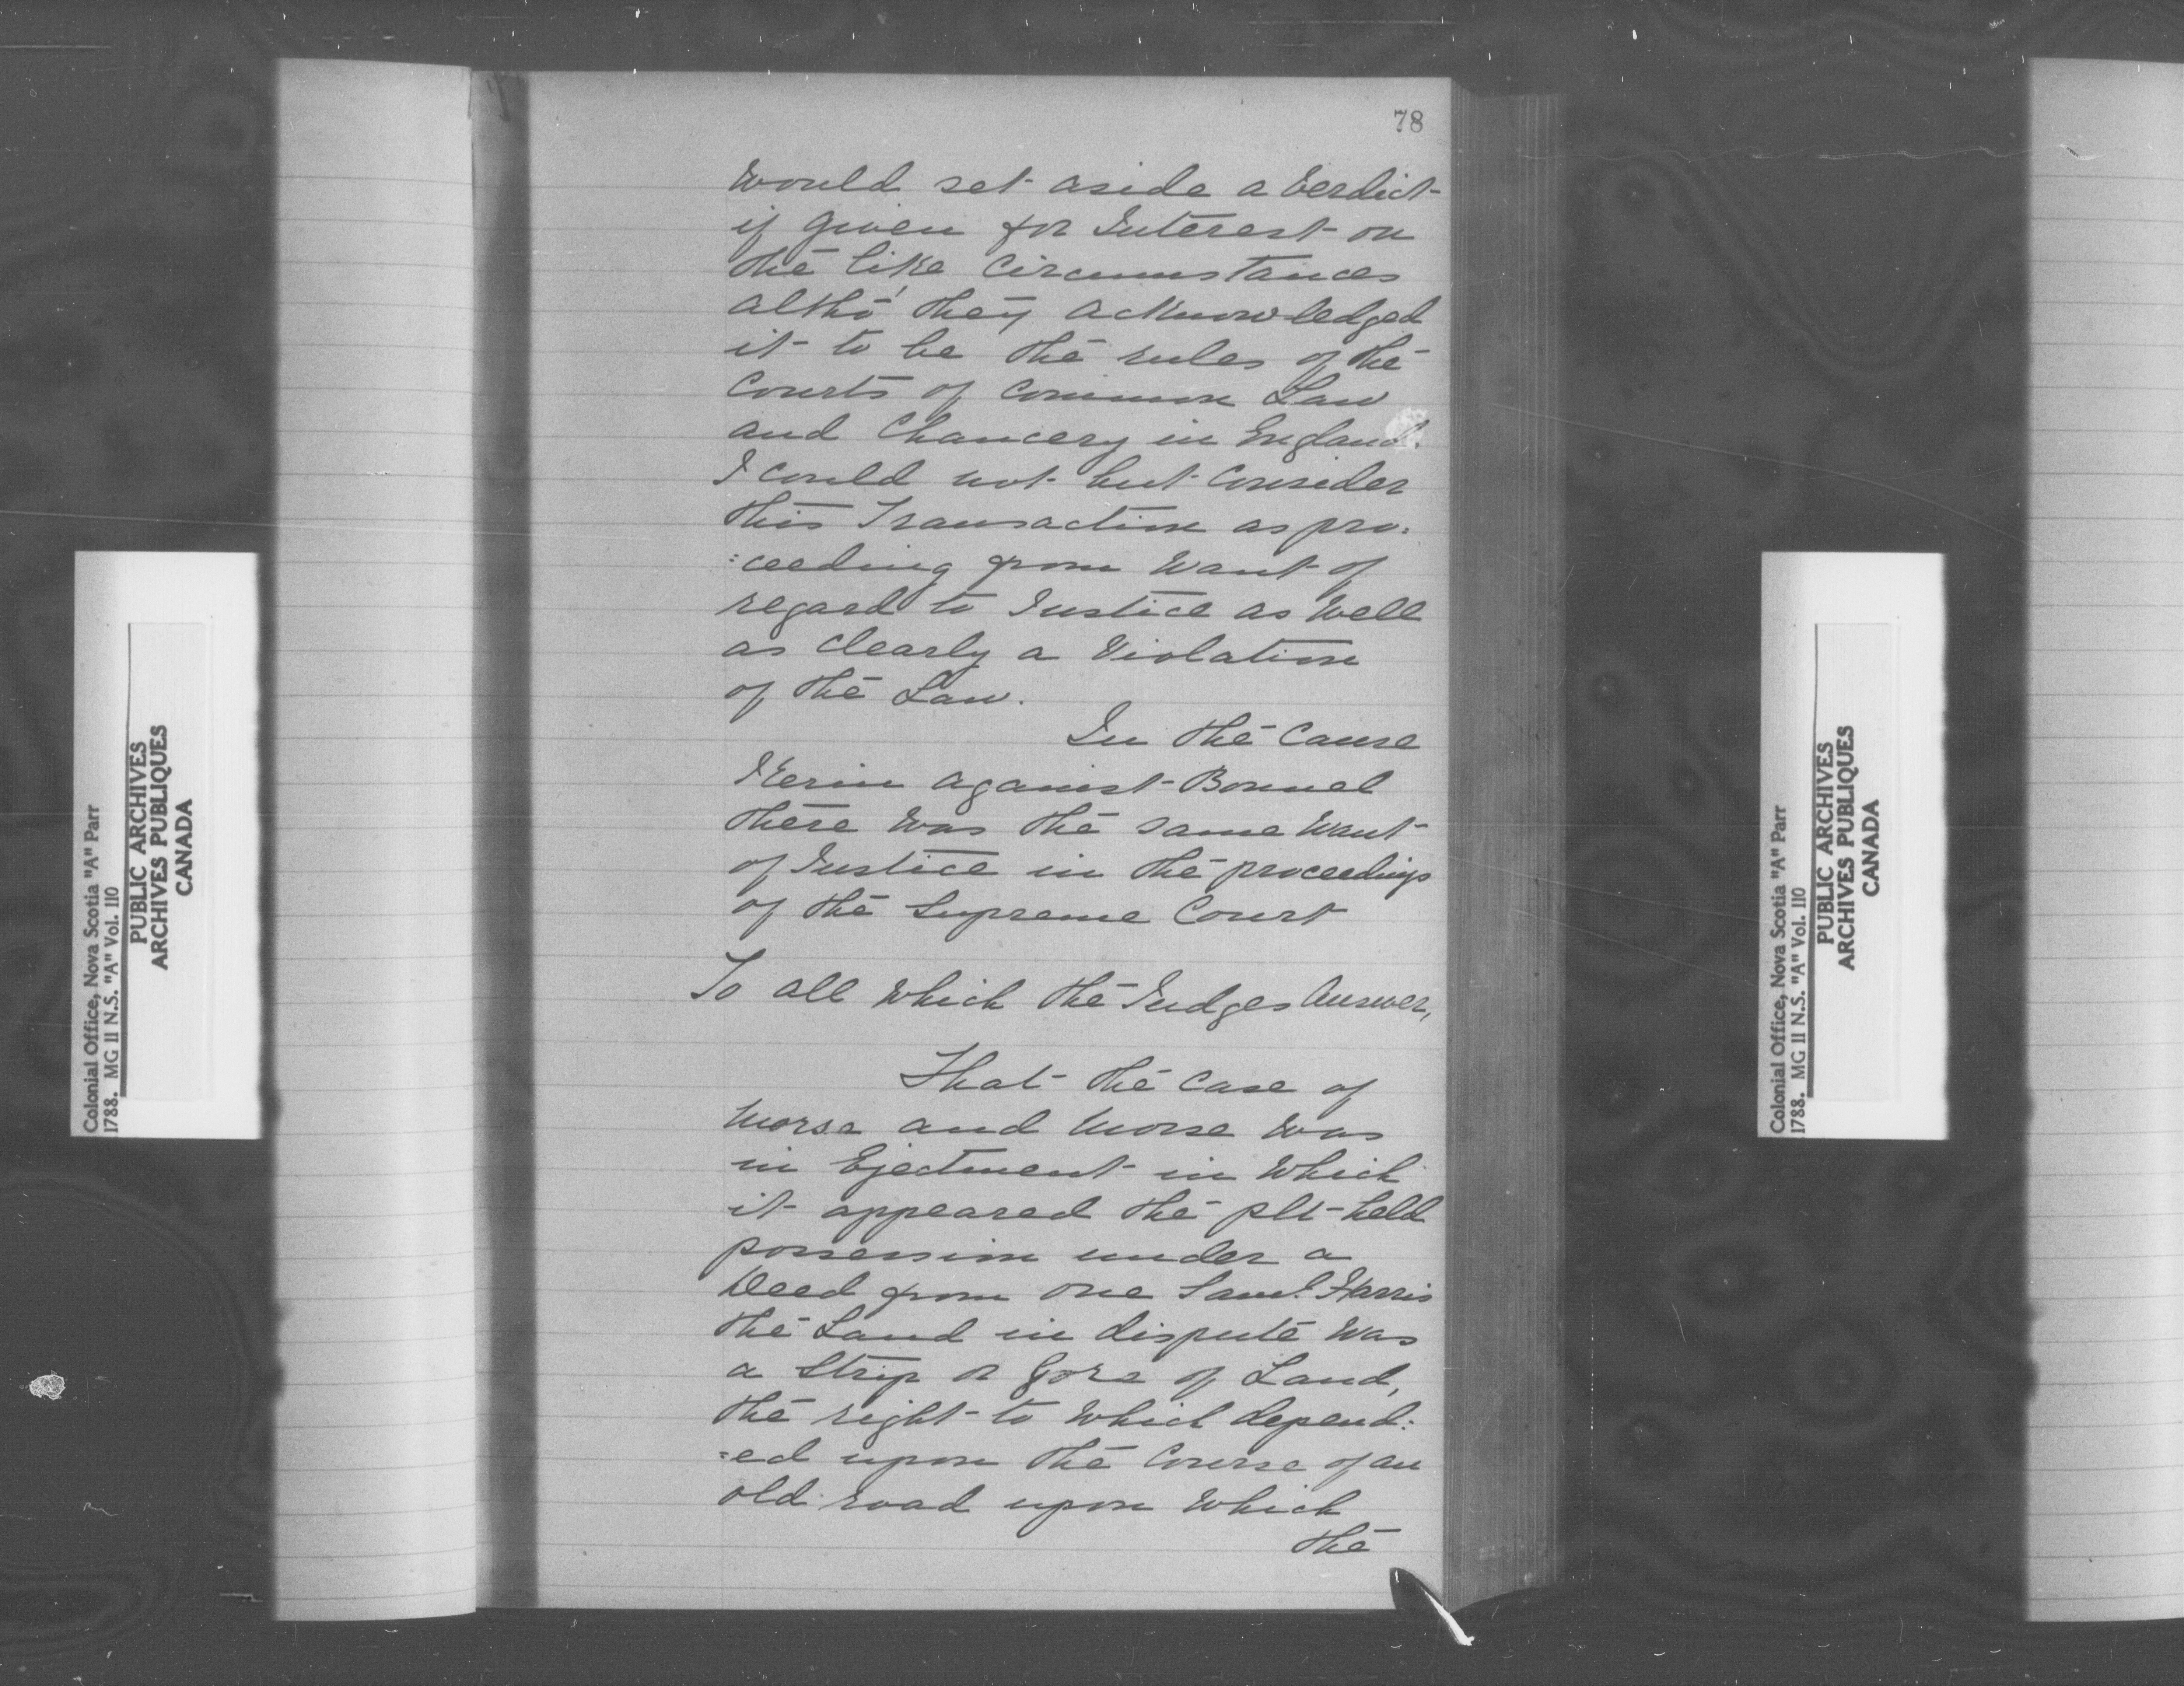 78
Would set aside a Verdict
if given for Interest on
the like Circumstances
altho' they acknowledged
it to be the rules of the
Courts of Common Law
and Chancery in England.
I could not but Consider
this Transaction as pro:
:ceeding from Want of
regard to Justice as Well
as Clearly a Violation
of the Law.
In the Cause
against Bonnel
there was the same Want
of Justice in the proceedings
of the Supreme Court
To all Which the Judges Answer,
That the Case of
Morse and Morse Was
in Ejectment in Which
it appeared the Plt held
possession under a
Deed from one Saml. Harris
the Land in dispute Was
a Strip or Gore of Land,
the right to Which depend:
=ed upon the Course of an
old road upon Which
the
Colonial Office, Nova Scotia "A" Parr
1788. MG 11 N.S. "A" Vol. 110
PUBLIC ARCHIVES
ARCHIVES PUBLIQUES
CANADA
Colonial Office, Nova Scotia "A" Parr
1788. MG 11 N.S. "A" Vol. 110
PUBLIC ARCHIVES
ARCHIVES PUBLIQUES
CANADA